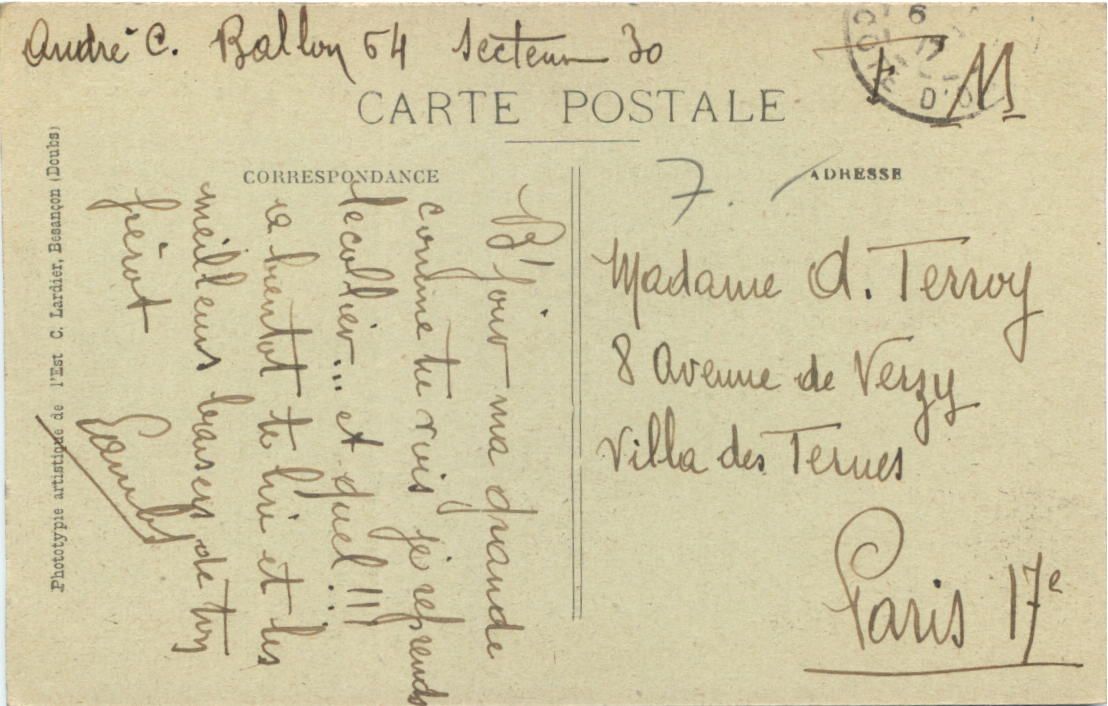 André C. Ballon 64 Secteur 30
6
COTE D'O
F M
CARTE POSTALE
CORRESPONDANCE
ADRESSE
7.
B'jour ma grande
comme tu vois je reprends
le collier... et quel!!!
a bientot te lire et les
meilleurs baisers de ton
frérot
Madame A. Terroy
8 Avenue de Verzy
Villa des Ternes
Paris 17e
Phototypie artistique de l'Est C. Lardier, Besançon (Doubs)